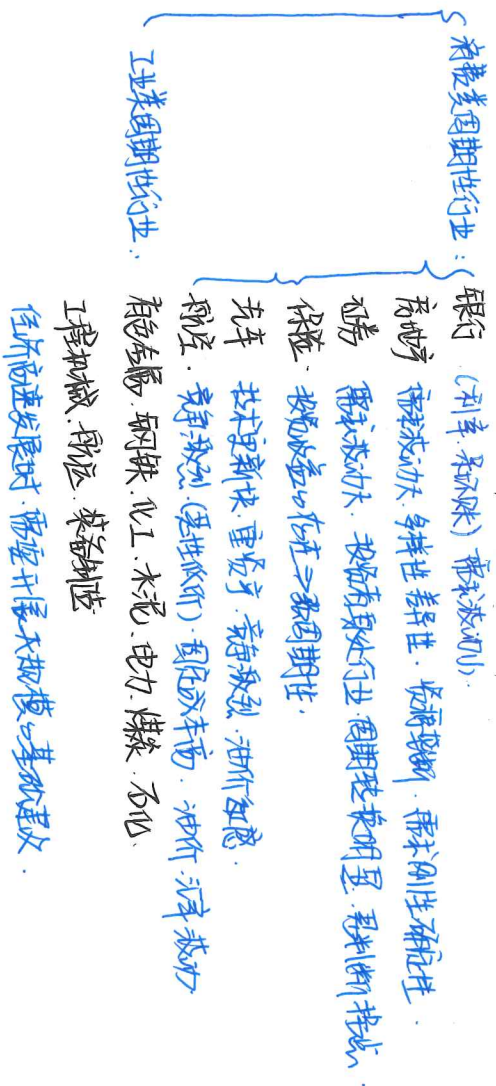 消费类周期性行业：
银行（利率、呆坏账）需求波动小.
房地产 需求波动大. 多样性 差异性. 资源垄断. 需求刚性 确定性.
证券 需求波动大. 投资者身处行业. 周期性较明显. 易判断拐点.
保险. 投资收益的存在⇒强周期性.
汽车 技术更新快 重资产. 竞争激烈. 油价敏感.
航运. 竞争激烈.（恶性低价）. 固定成本高. 油价 汇率波动.
工业类周期性行业：
有色金属. 钢铁. 化工. 水泥. 电力. 煤炭. 石化.
工程机械. 航运. 装备制造
经济高速发展时. 需要开展大规模的基础建设.